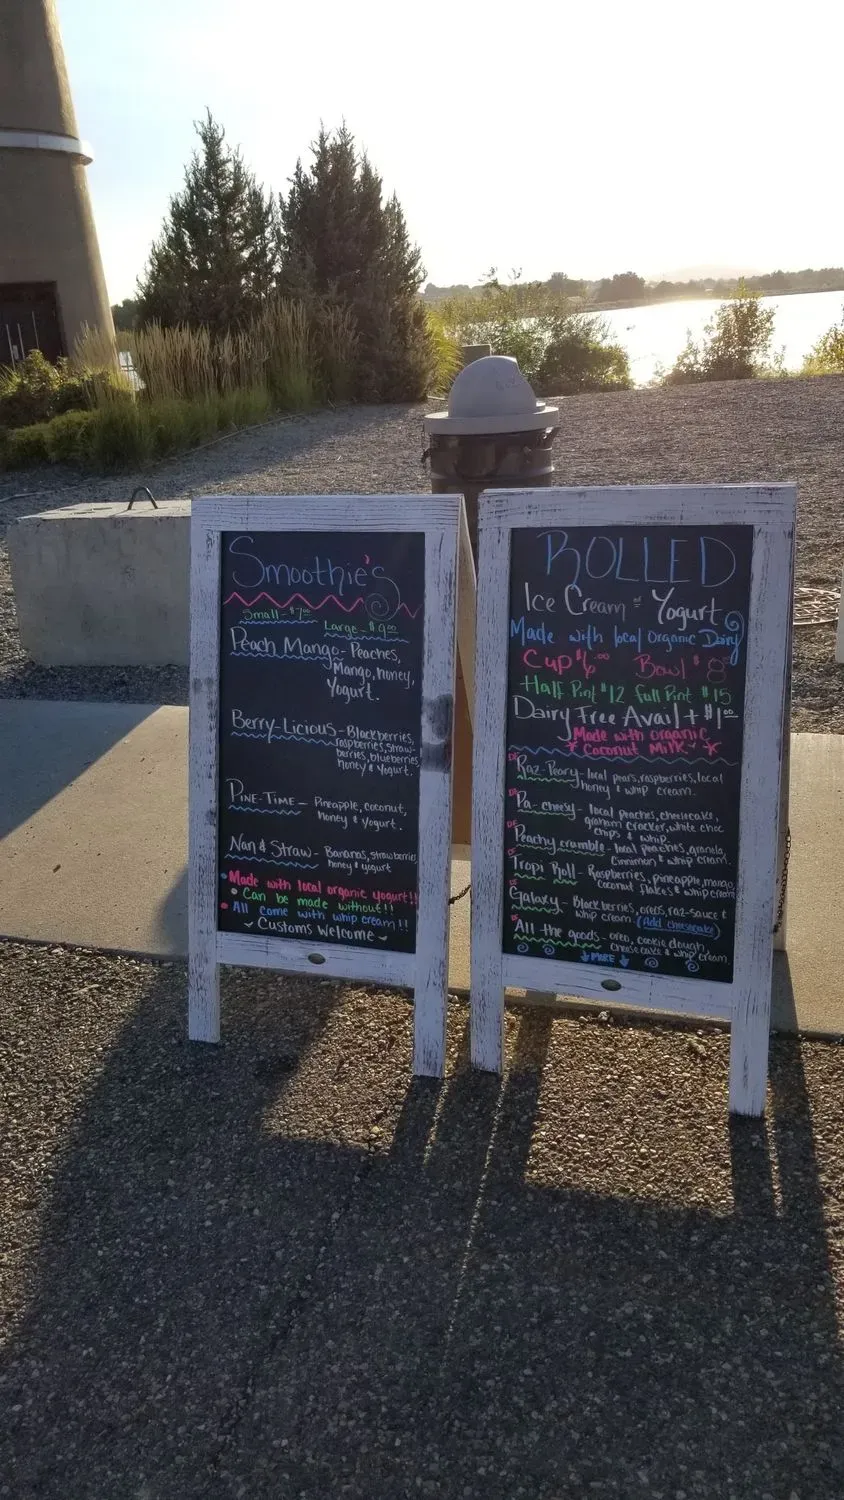 Smoothie's
Small - $7.00
Large - $9.00
Peach Mango - Peaches,
Mango, honey,
Yogurt.
Berry-Licious - Blackberries,
raspberries, straw-
berries, blueberries
honey & Yogurt.
Pine-Time - Pineapple, coconut,
honey & Yogurt.
Nan & Straw - Bananas, strawberries
honey & yogurt
• Made with local organic yogurt!!
• Can be made without!!
• All come with whip cream!!
~ Customs Welcome ~
ROLLED
Ice Cream or Yogurt
Made with local Organic Dairy
Cup $6.00 Bowl $8.00
Half Pint $12 Full Pint $15
Dairy Free Avail + $1.00
Made with organic
* Coconut Milk - *
Raz-Peary - local pears, raspberries, local
honey & whip cream.
Pa-cheesy - local peaches, cheesecake,
graham cracker, white choc
chips & whip.
Peachy crumble - local peaches, granola,
Cinnimon & whip cream.
Tropi Roll - Raspberries, pineapple, mango,
coconut flakes & whip cream
Galaxy - Blackberries, oreos, raz-sauce &
whip cream (Add cheesecake)
All the goods - oreo, cookie dough,
cheesecake & whip cream.
↓ MORE ↓